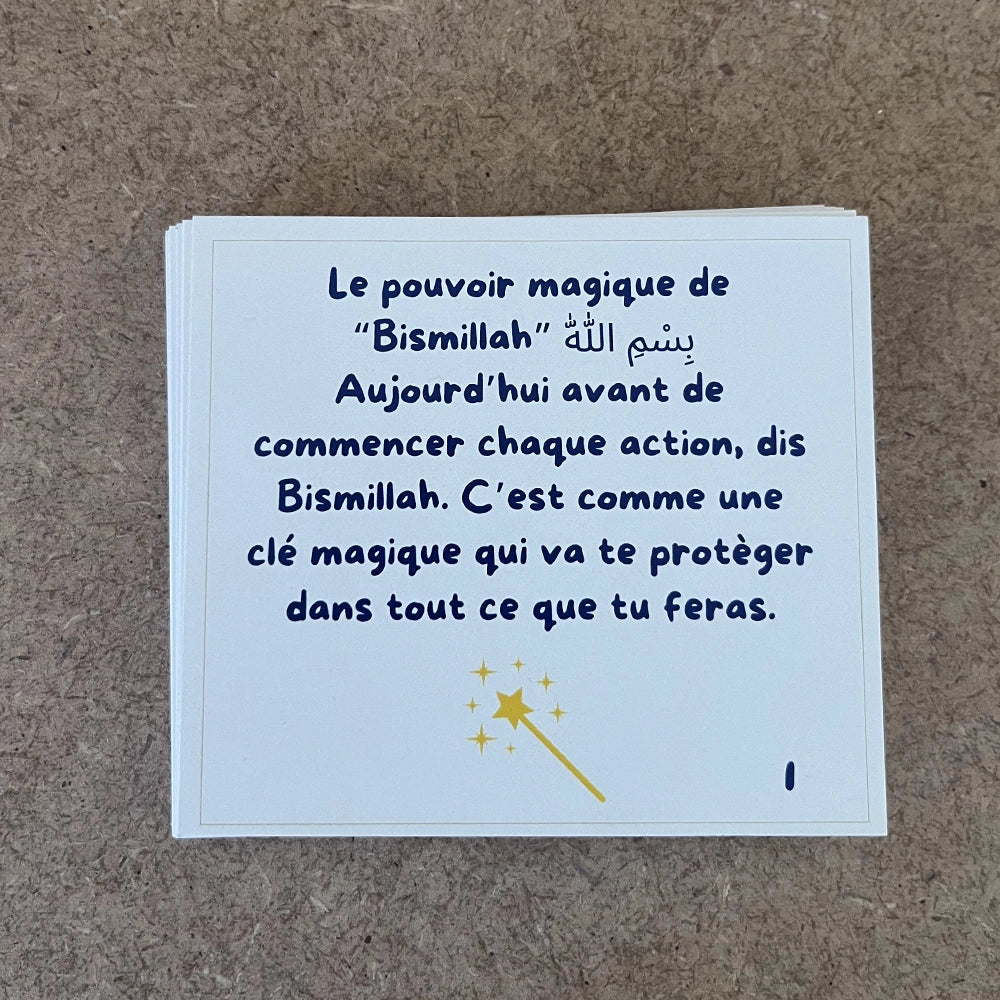 Le pouvoir magique de
“Bismillah” بِسْمِ اللّٰه
Aujourd’hui avant de
commencer chaque action, dis
Bismillah. C’est comme une
clé magique qui va te protèger
dans tout ce que tu feras.
1